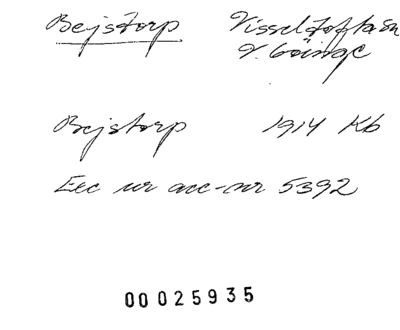 Bejstorp Visseltofta sn
V. Göinge
Bejstorp 1914 Kb
Exc ur acc-nr 5392
00025935